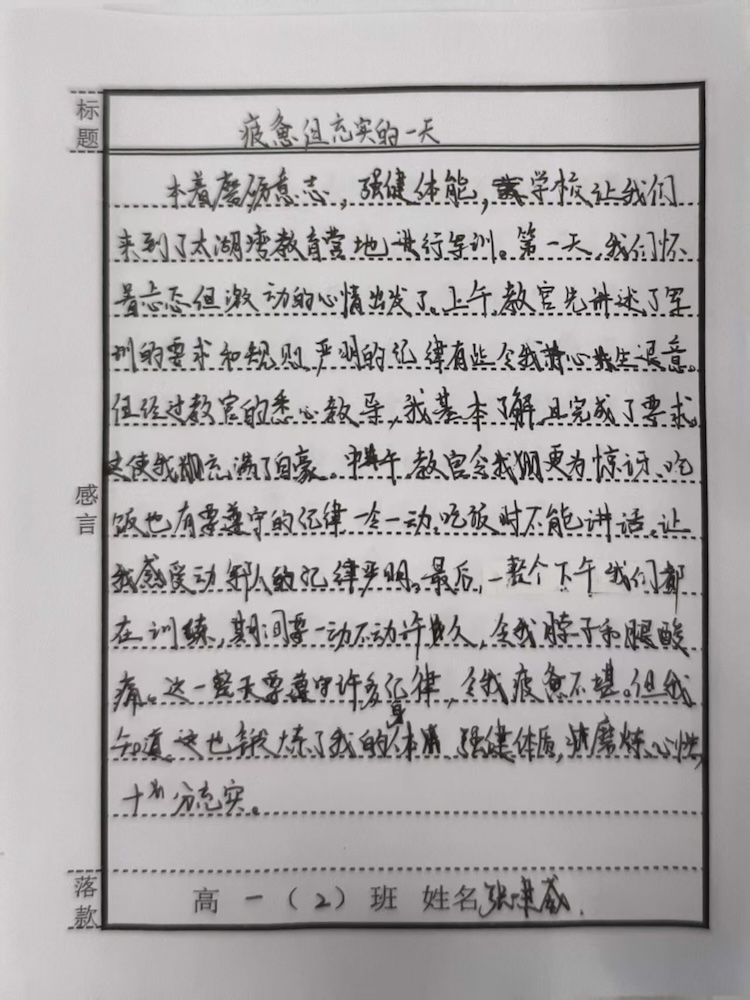 标题
疲惫但充实的一天
本着磨砺意志，强健体能，学校让我们
来到了太湖湾教育营地进行军训。第一天，我们怀
着忐忑但激动的心情出发了。上午，教官先讲述了军
训的要求和规则，严明的纪律有些令我心生退意。
但经过教官的悉心教导，我基本了解且完成了要求。
这使我充满了自豪。中午，教官令我更为惊讶，吃
饭也有要遵守的纪律，一令一动，吃饭时不能讲话，让
我感受动军人的纪律严明。最后，一整个下午我们都
在训练，期间要一动不动许久，令我脖子和腿酸
痛。这一整天要遵守许多纪律，令我疲惫不堪。但我
知道，这也锻炼了我的身体，强健体质，磨炼心性，
十分充实。
感言
落款
高一（2）班 姓名 张